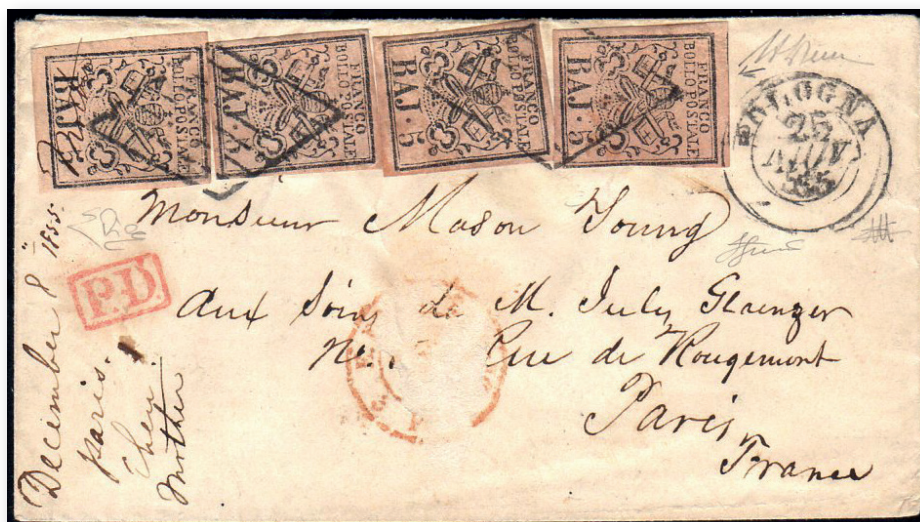 FRANCO
BOLLO POSTALE
BAJ.
FRANCO
BOLLO POSTALE
BAJ. 5
FRANCO
BOLLO POSTALE
BAJ. 5
FRANCO
BOLLO POSTALE
BAJ. 5
BOLOGNA
25
NOV
55
Monsieur Mason Young
Aux Soins de M. July Glaenzer
Rue de Rougemont
Paris
France
P.D.
December 8 1855.
paris.
Mother